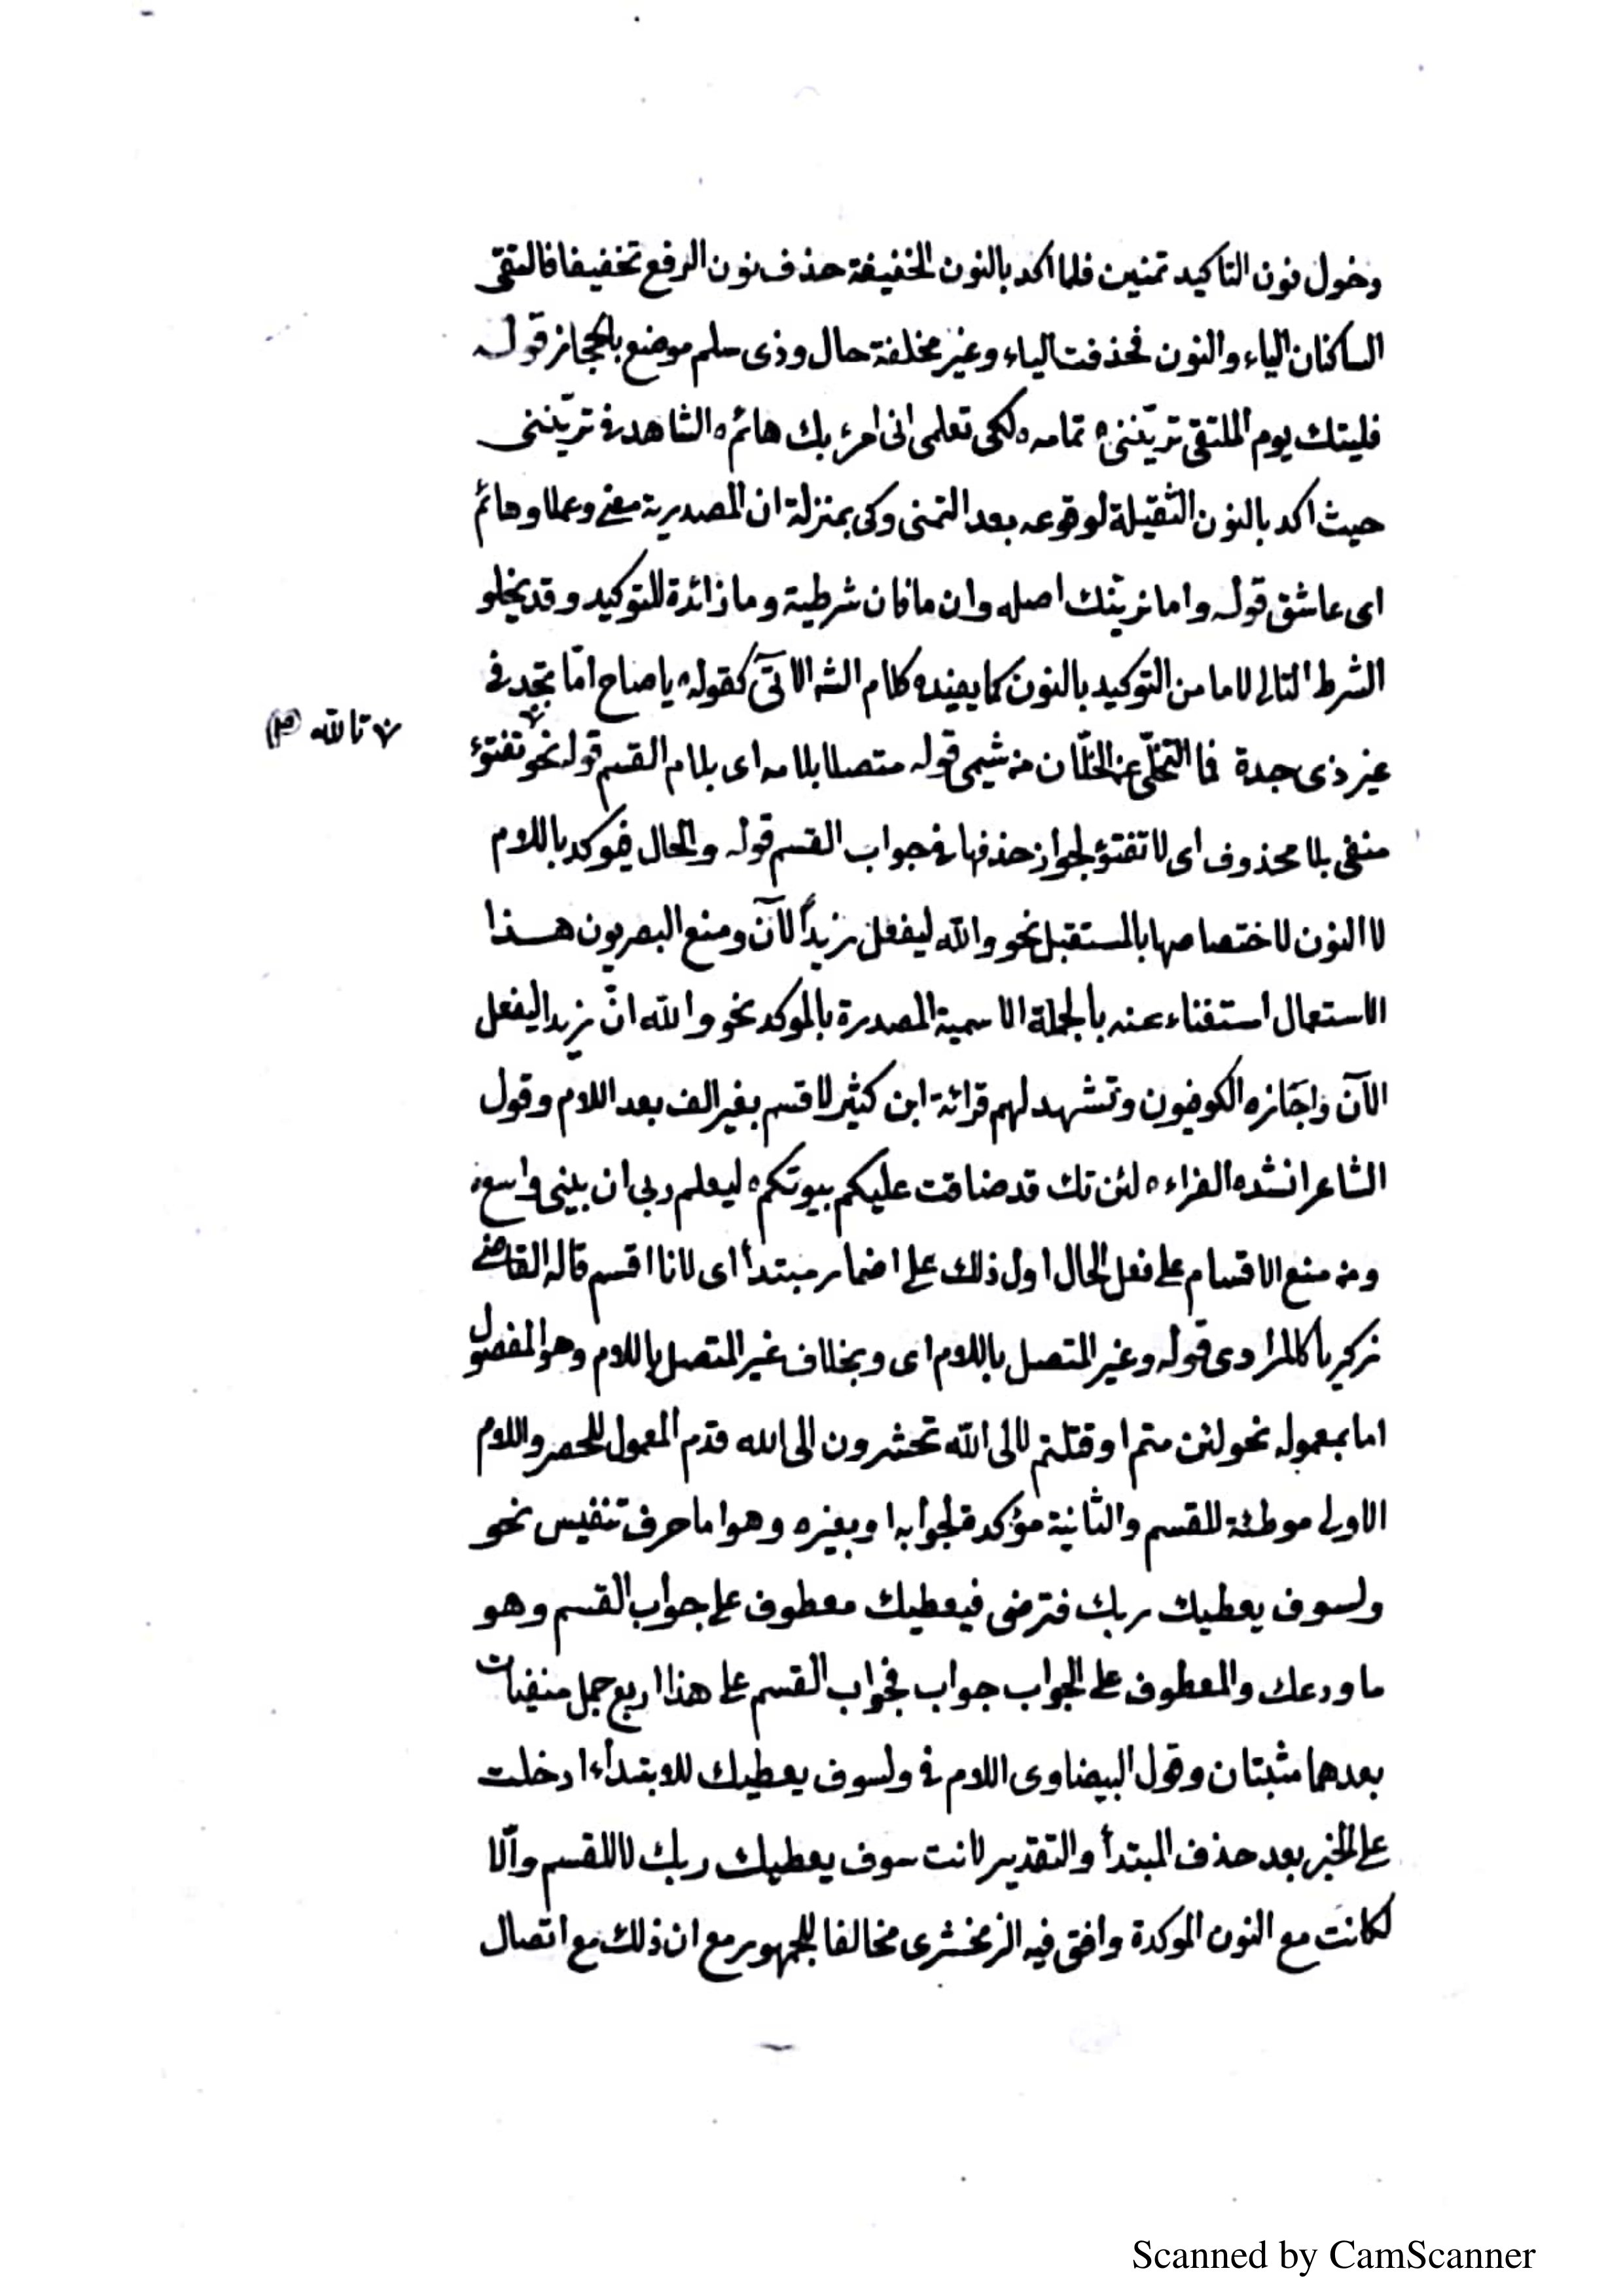 دخول نون التاكيد تمنين فلما اكد بالنون الخفيفة حذف نون الرفع تخفيفا فالتقى
الساكنان الياء والنون فحذفت الياء وغير مخلفة حال وذى سلم موضع بالحجاز قوله
فليتك يوم الملتقى تريننى ه تمامه ه لكى تعلمى انى امرء بك هائم ه الشاهد فى تريننى
حيث اكد بالنون الثقيلة لوقوعه بعد التمنى وكى بمنزلة ان المصدرية معنى وعملا وهائم
اى عاشق قوله واما نرينك اصله وان ما فان شرطية وما زائدة للتوكيد وقد يخلو
الشرط التالى لاما من التوكيد بالنون كما يفيده كلام الشه الآتى كقوله ه يا صاح امّا تجدنى
غير ذى جدة فما التخلّى عن الخلّان من شيمى قوله متصلا بلامه اى بلام القسم قوله نحو تفتؤ
٧ تالله (م)
منفى بلا محذوف اى لا تفتؤ لجواز حذفها فى جواب القسم قوله والحال فيوكد باللام
لا النون لاختصاصها بالمستقبل نحو والله ليفعل زيدٌ الآن ومنع البصريون هذا
الاستعمال استغناء عنه بالجملة الاسمية المصدرة بالموكد نحو والله انّ زيدا ليفعل
الآن واجازه الكوفيون وتشهد لهم قرائة ابن كثير لاقسم بغير الف بعد اللام وقول
الشاعر انشده الفراء ه لئن تك قد ضاقت عليكم بيوتكم ه ليعلم ربى ان بيتى واسع ه
ومن منع الاقسام على فعل الحال اول ذلك على اضمار مبتدأ اى لانا اقسم قاله القاضى
زكريا كالمرادى قوله وغير المتصل باللام اى وبخلاف غير المتصل باللام وهو المفصول
اما بمعموله نحو لئن متم او قتلتم لالى الله تحشرون الى الله قدم المعمول للحصر واللام
الاولى موطئة للقسم والثانية مؤكدة لجوابه او بغيره وهو اما حرف تنفيس نحو
ولسوف يعطيك ربك فترضى فيعطيك معطوف على جواب القسم وهو
ما ودعك والمعطوف على الجواب جواب فجواب القسم على هذا اربع جمل منفيات
بعدهما مثبتان وقول البيضاوى اللام فى ولسوف يعطيك للابتدأء ادخلت
على الخبر بعد حذف المبتدأ والتقدير لانت سوف يعطيك ربك لا للقسم والّا
لكانت مع النون الموكدة وافق فيه الزمخشرى مخالفا للجمهور مع ان ذلك مع اتصال
Scanned by CamScanner